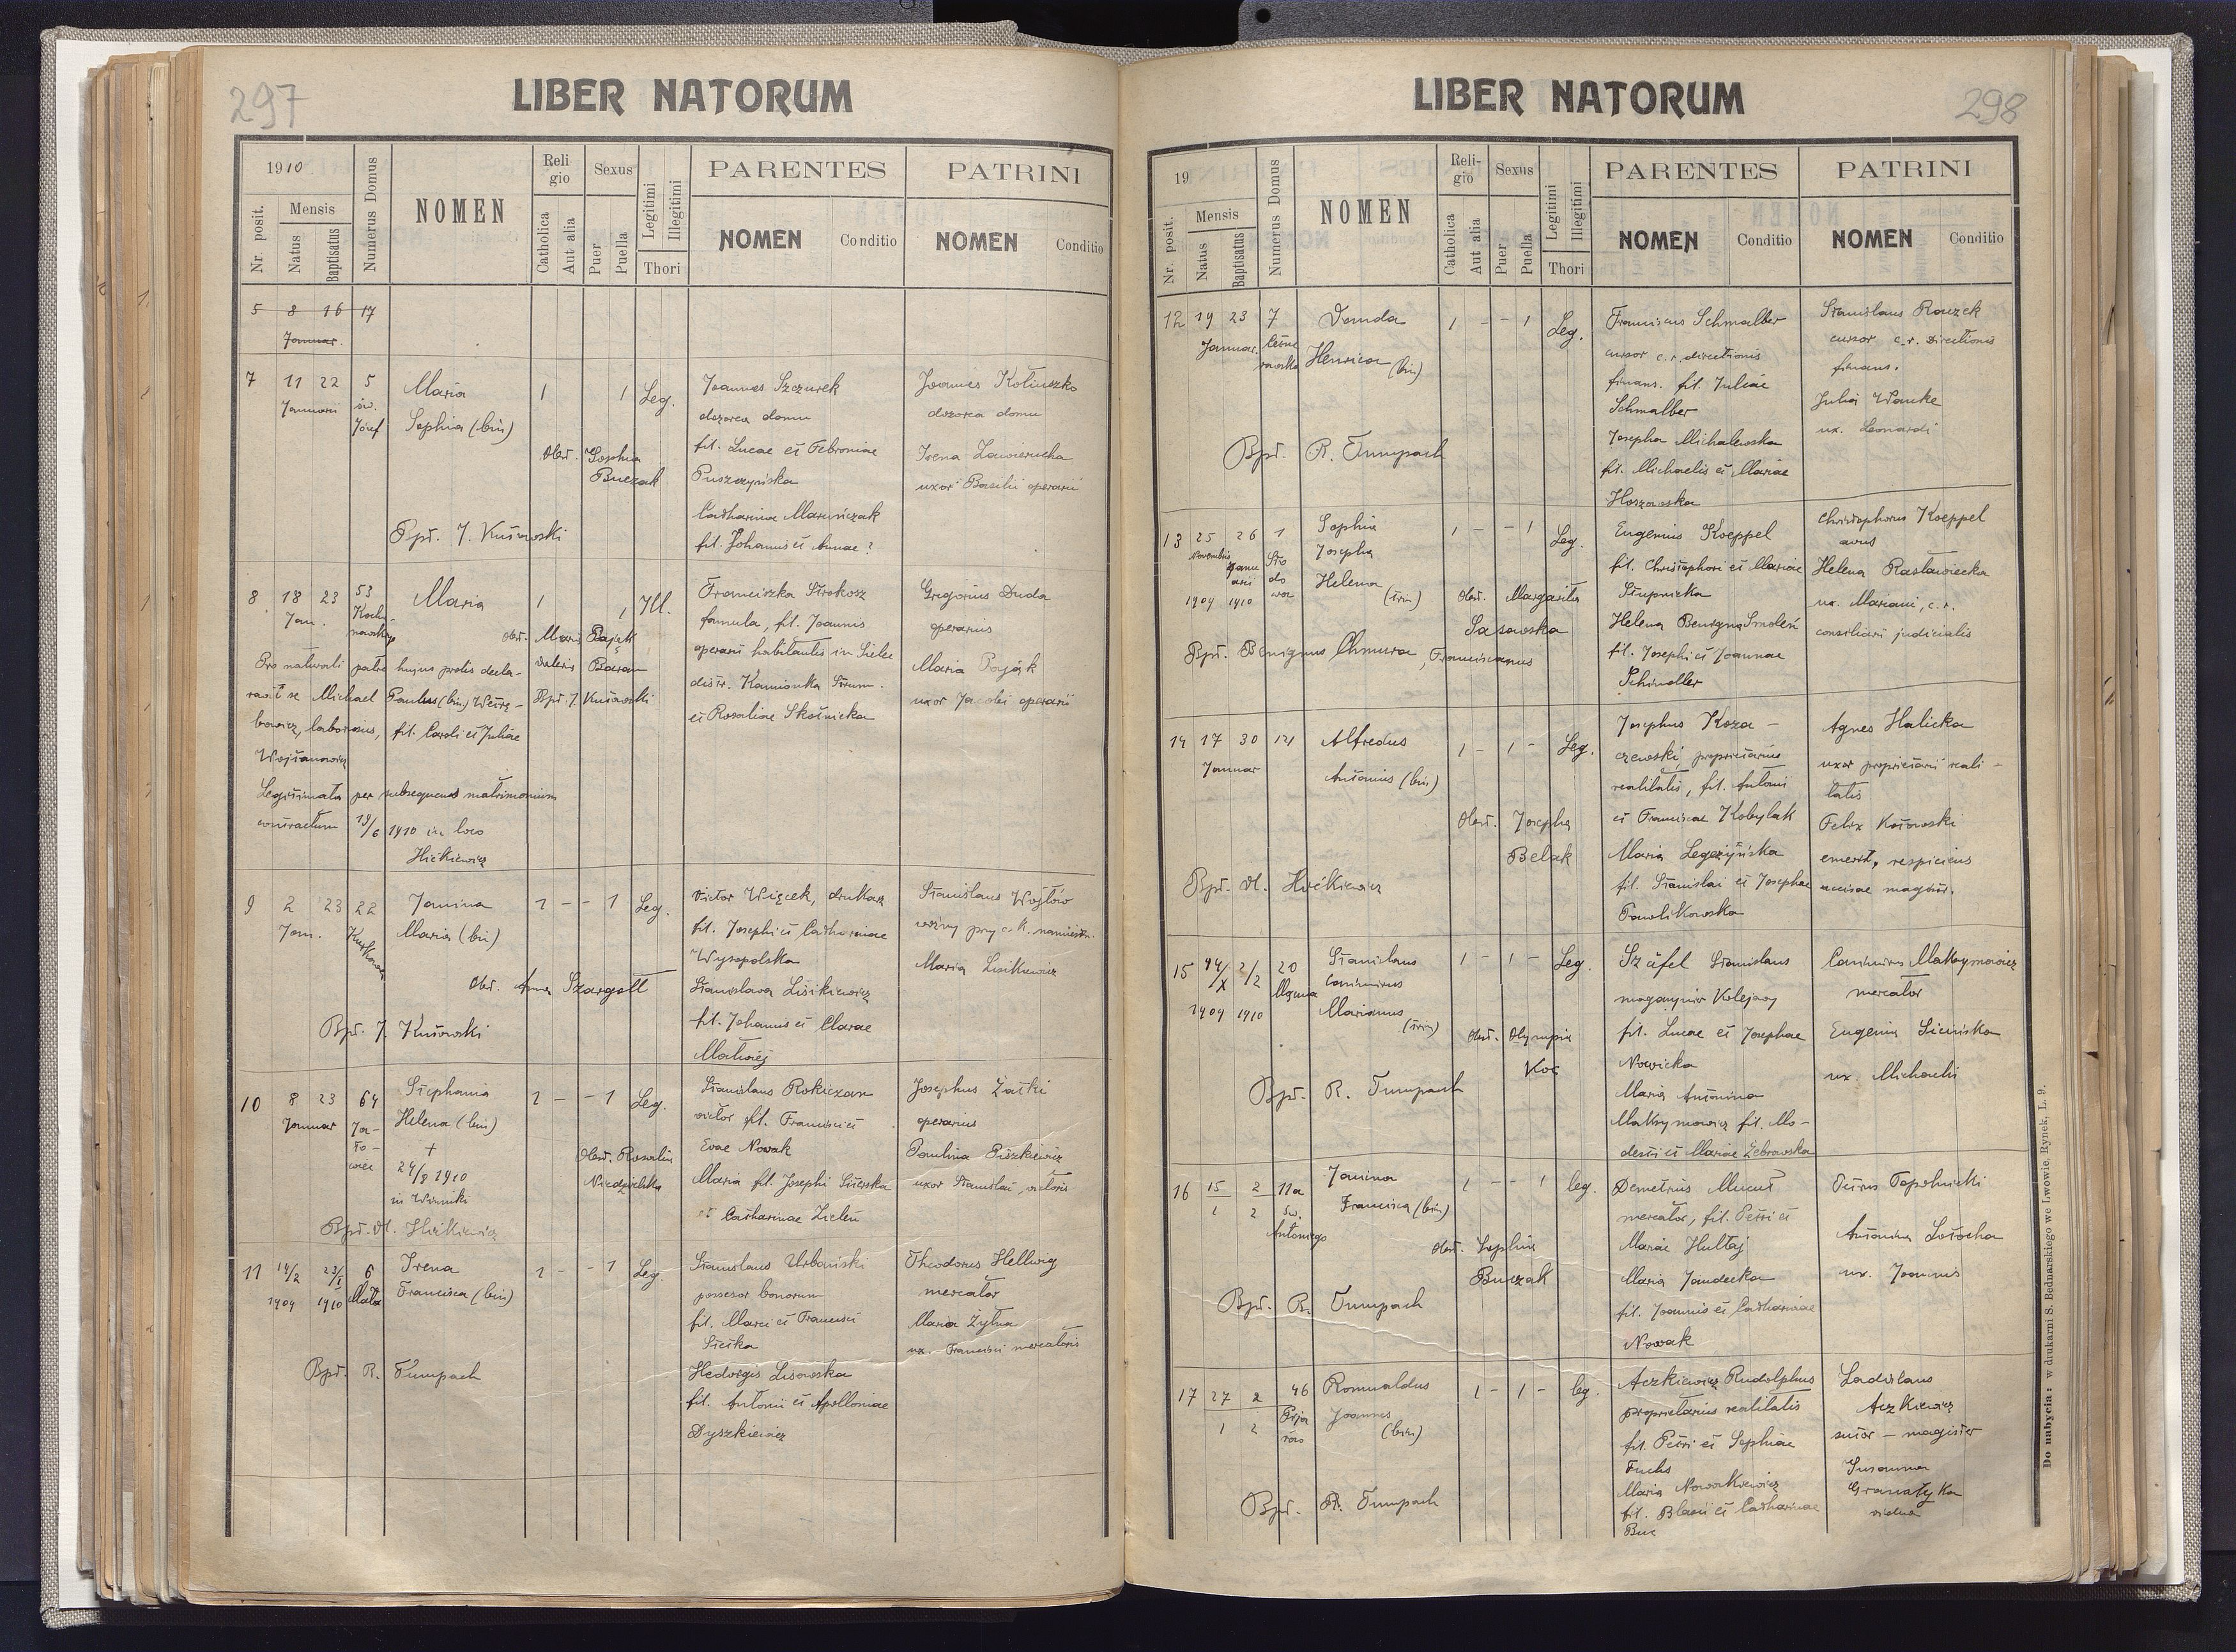 297
LIBER NATORUM
1910
Nr. posit.
Mensis
Natus
Baptisatus
Numerus Domus
NOMEN
Religio
Catholica
Aut alia
Sexus
Puer
Puella
Legitimi
Illegitimi
Thori
PARENTES
NOMEN
Conditio
PATRINI
NOMEN
Conditio
5 8 16 17
Januar.
7 11 22 5 Maria 1 1 Leg. Joannes Szczurek
Januarii św. Józef Sophia (bin) dozorca domu
fil. Lucae et Febroniae
Puszczyńska
Catharina Maruńczak
fil. Johannis et Annae ?
dozorca domu
Irena Zawierucha
uxor Basilii operarii
Obst. Sophia
Buczak
Bpt. J. Kutowski
8 18 23 53 Maria 1 1 Ill. Franciszka Strokosz
Jan.
famula, fil. Joannis
operarii habitantis in Sielec
distr. Kamionka Strum.
et Rosaliae Skotnicka
Gregorius Duda
operarius
Maria Pająk
uxor Jacobi operarii
Obst. Maria Pająk
Valeria Baran
Bpt. J. Kutowski
Pro naturali patre hujus prolis decla-
ravit se Michael Paulus (bin)
fil. Caroli et Juliae
Legitimata per subsequens matrimonium
contractum 19/6 1910 in loco
9 2 23 22 Janina 1 - - 1 Leg. Victor Więcek, drukarz
Jan. Kurkowa Maria (bin) fil. Josephi et Catharinae
Wysopolska
Stanislava Lisikiewicz
fil. Johannis et Clarae
Matwiej
Stanislaus Wojtów
woźny przy c. k. namiestn.
Maria Lisikiewicz
Obst. Anna Szargott
Bpt. J. Kutowski
10 8 23 64 Stephania 1 - - 1 Leg. Stanislaus Rokiczan
Januar Helena (bin)
fil. Francisci et
Evae Nowak
Maria fil. Josephi
et Catharinae Zieleń
Josephus Żatki
operarius
Paulina Piszkiewicz
uxor Stanislai
† 24/8 1910
in Winniki
Obst. Rosalia
Niedzielska
11 14/2 23/1 6 Irena 1 - - 1 Leg. Stanislaus Urbański
1909 1910 Francisca (bin) possesor bonorum
fil. Marci et
Hedvigis Lisowska
fil. Antonii et Apolloniae
Dyszkiewicz
Theodorus Hellwig
mercator
Maria Żytna
ux. Francisci mercatoris
Bpt. R. Tumpach
LIBER NATORUM
298
19
Nr. posit.
Mensis
Natus
Baptisatus
Numerus Domus
NOMEN
Religio
Catholica
Aut alia
Sexus
Puer
Puella
Legitimi
Illegitimi
Thori
PARENTES
NOMEN
Conditio
PATRINI
NOMEN
Conditio
12 19 23 7 Vanda 1 - - 1 Leg. Franciscus Schmalber
Januar. Henrica (bin) cursor c.r. directionis
finans. fil. Juliae
Schmalber
Josepha Michalewska
fil. Michaelis et Mariae
Hoszowska
Stanislaus Rouzek
cursor c.r. directionis
finans.
Julia Wanke
ux. Leonardi
Bpt. R. Tumpach
13 25 26 1 Sophia 1 - - 1 Leg. Eugenius Koeppel
Novembris Januarii Josepha
1909 1910 Helena (trin)
fil. Christophori et Mariae
Stupnicka
Helena Benigna Smoleń
fil. Josephi et Joannae
Schindler
Christophorus Koeppel
avus
Helena Rastawiecka
ux. Mariani, c.r.
consiliarii judicialis
Obst. Margarita
Sasowska
Bpt. Benignus Chmura, Franciscanus
14 17 30 121 Alfredus 1 - 1 - Leg. Josephus Koza-
Januar Antonius (bin) czewski, proprietarius
realitatis, fil. Antoni
et Franciscae Kobylak
Maria Legeżyńska
fil. Stanislai et Josephae
Pawlikowska
Agnes Halicka
uxor proprietarii reali-
tatis
Felix Kotowski
emerit. respiciens
Obst. Josepha
Belak
15 2/2 20 Stanislaus 1 - 1 - Leg. Szafel Stanislaus
1909 1910 Casimirus
Marianus (trin)
magazynier kolejowy
fil. Lucae et Josephae
Nowicka
Maria Antonina
Maksymowicz fil. Mo-
desti et Mariae Żebrowska
Casimirus Maksymowicz
mercator
Eugenia Sicińska
ux. Michaelis
Obst. Olympia
Koc
Bpt. R. Tumpach
16 15 2 11a Janina 1 - - 1 leg. Demetrius Mucut
1 2 św. Antoniego Francisca (bin) mercator, fil. Petri et
Mariae Hultaj
Maria Jandecka
fil. Joannis et Catharinae
Nowak
Petrus Topolnicki
Antonina Sotocha
ux. Joannis
Obst. Sophia
Buczak
Bpt. R. Tumpach
17 27 2 46 Romualdus 1 - 1 - leg. Aczkiewicz Rudolphus
1 2 Pijarów Joannes (bin) proprietarius realitatis
fil. Petri et Sophiae
Fuchs
Maria Nowakiewicz
fil. Blasii et Catharinae
Buc
Ladislaus
Aczkiewicz
sutor - magister
Susanna
Granatyka
vidua
Bpt. R. Tumpach
Do nabycia: w drukarni S. Bednarskiego we Lwowie, Rynek, L. 9.